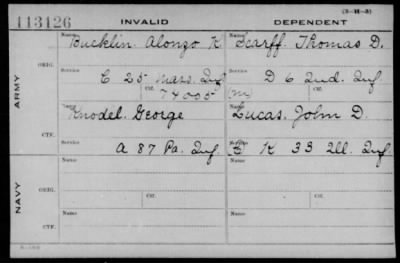 (3-H-3)
113126 INVALID DEPENDENT
Name Bucklin. Alonzo K. Scarff. Thomas D.
ORIG.
Service C 25 Mass. Inf D 6 Ind. Inf.
Ctf. 74005 (m) Ctf.
ARMY
Name Knodel. George Name Lucas. John D.
CTF.
Service A 87 Pa. Inf K 33 Ill. Inf
Name Name
ORIG.
Service Service
Ctf. Ctf.
NAVY
Name Name
CTF.
Service Service